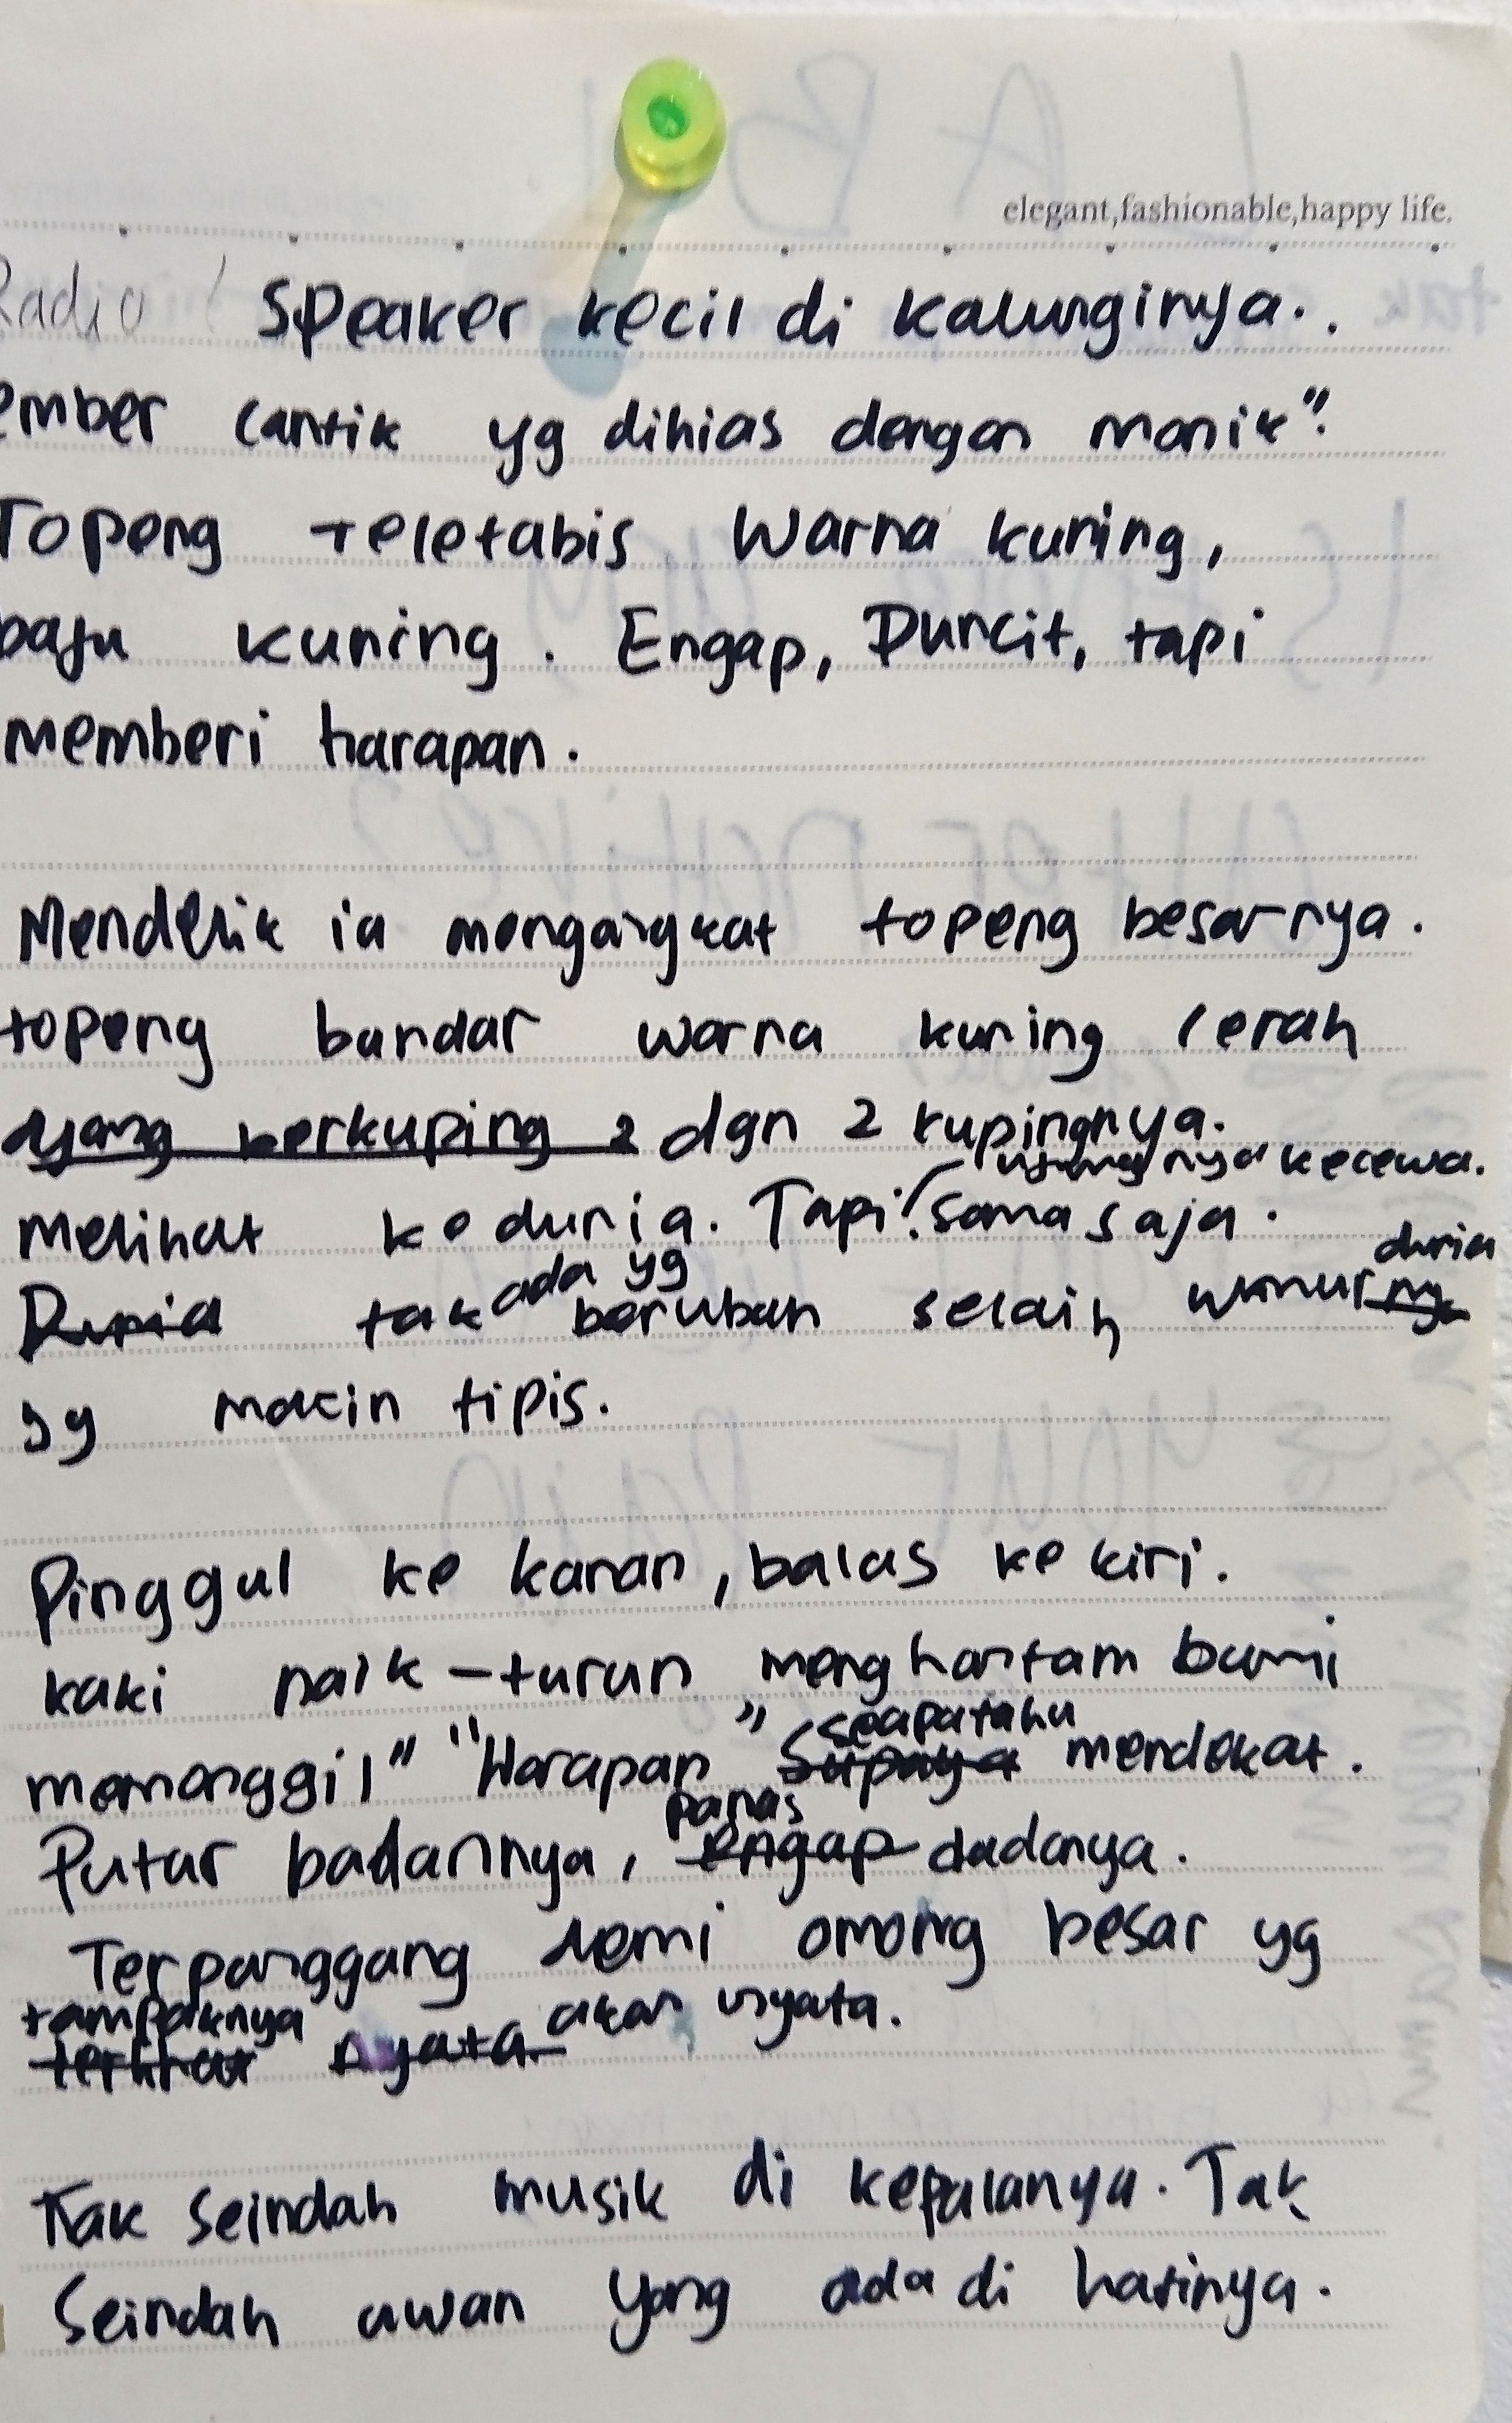 elegant,fashionable,happy life.
Radio / Speaker kecil di kalunginya..
ember cantik yg dihias dengan manik".
Topeng Teletabis Warna kuning,
baju kuning. Engap, Buncit, tapi
memberi harapan.
Mendelik ia mengangkat topeng besarnya.
topeng bundar warna kuning cerah
yang berkuping 2 dgn 2 kupingnya.
kecewa.
Melihat ke dunia. Tapi sama saja.
ada yg dunia
Dunia tak berubah selain
yg makin tipis.
Pinggul ke kanan, balas ke kiri.
kaki naik-turun menghantam bumi
seapatahu
memanggil" "Harapan" Supaya mendekat.
panas
Putar badannya, engap dadanya.
Terpanggang demi omong besar yg
tampaknya akan nyata.
terlihat nyata.
Tak seindah musik di kepalanya. Tak
Seindah awan yang ada di hatinya.